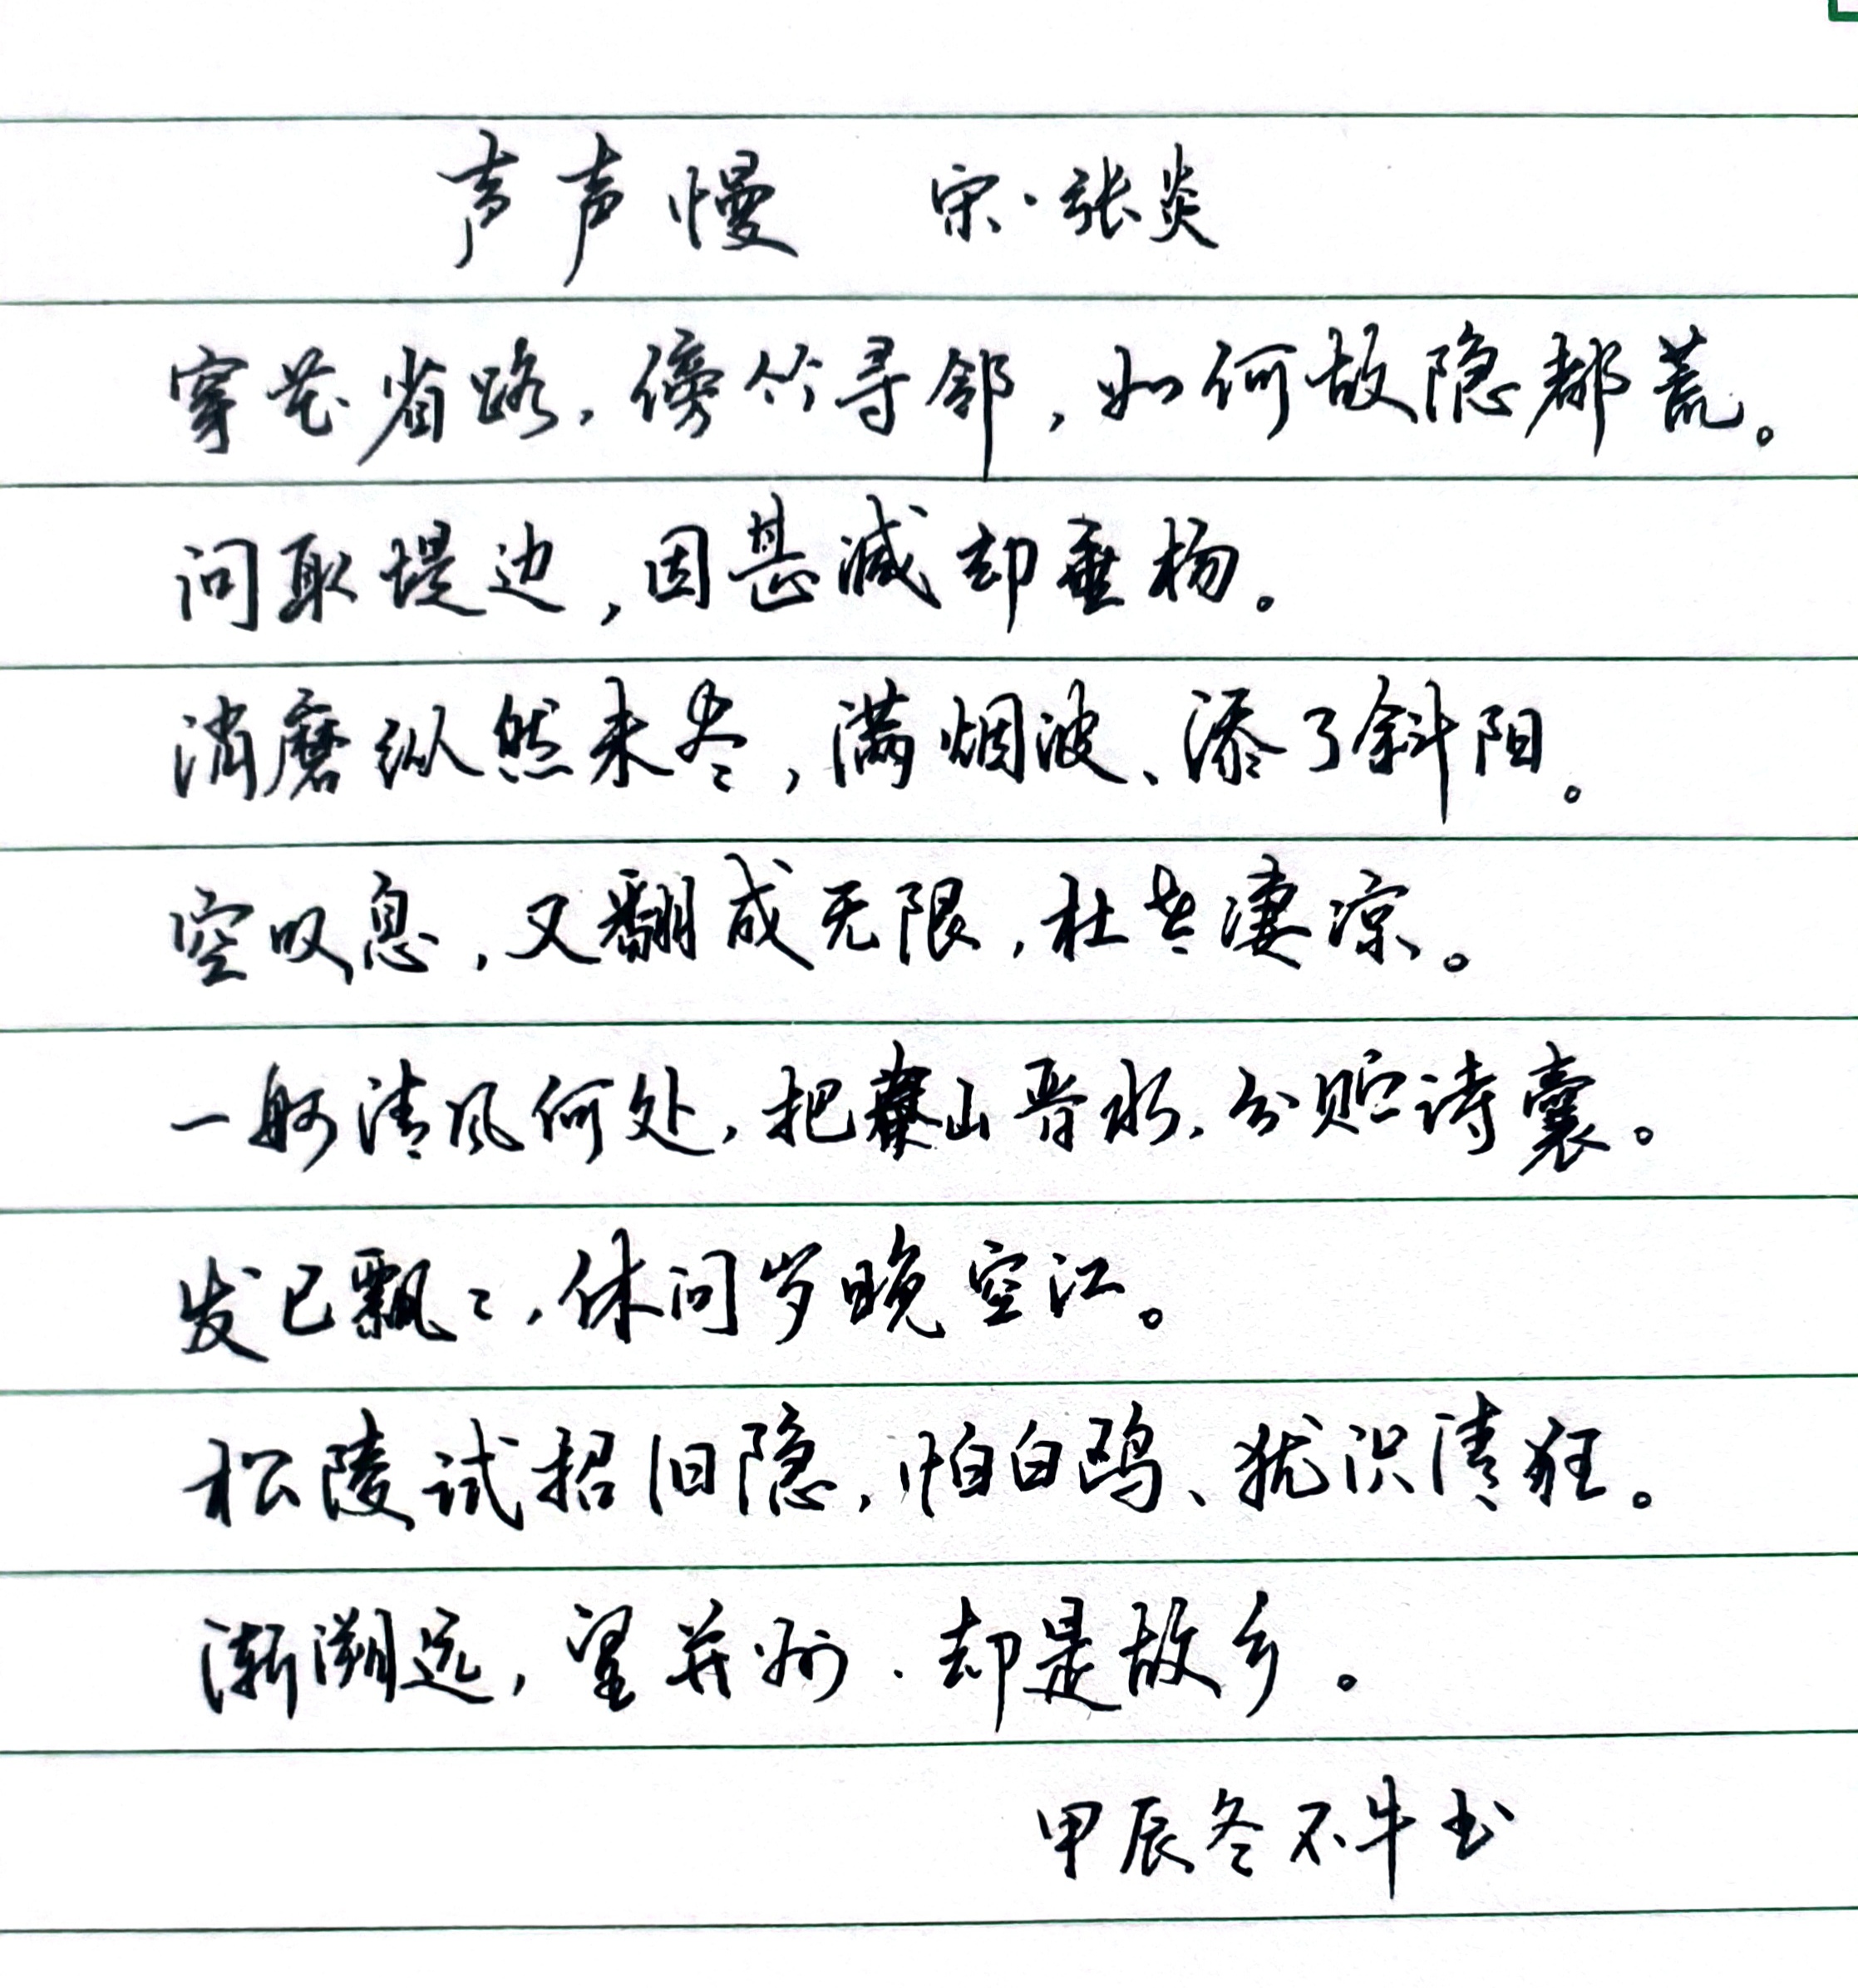 声声慢 宋·张炎
穿花省路,傍竹寻邻,如何故隐都荒。
问取堤边,因甚减却垂杨。
消磨纵然未尽,满烟波、添了斜阳。
空叹息,又翻成无限,杜老凄凉。
一舸清风何处,把秦山晋水,分贮诗囊。
发已飘〻,休问岁晚空江。
松陵试招旧隐,怕白鸥、犹识清狂。
渐溯远,望并州、却是故乡。
甲辰冬不牛书